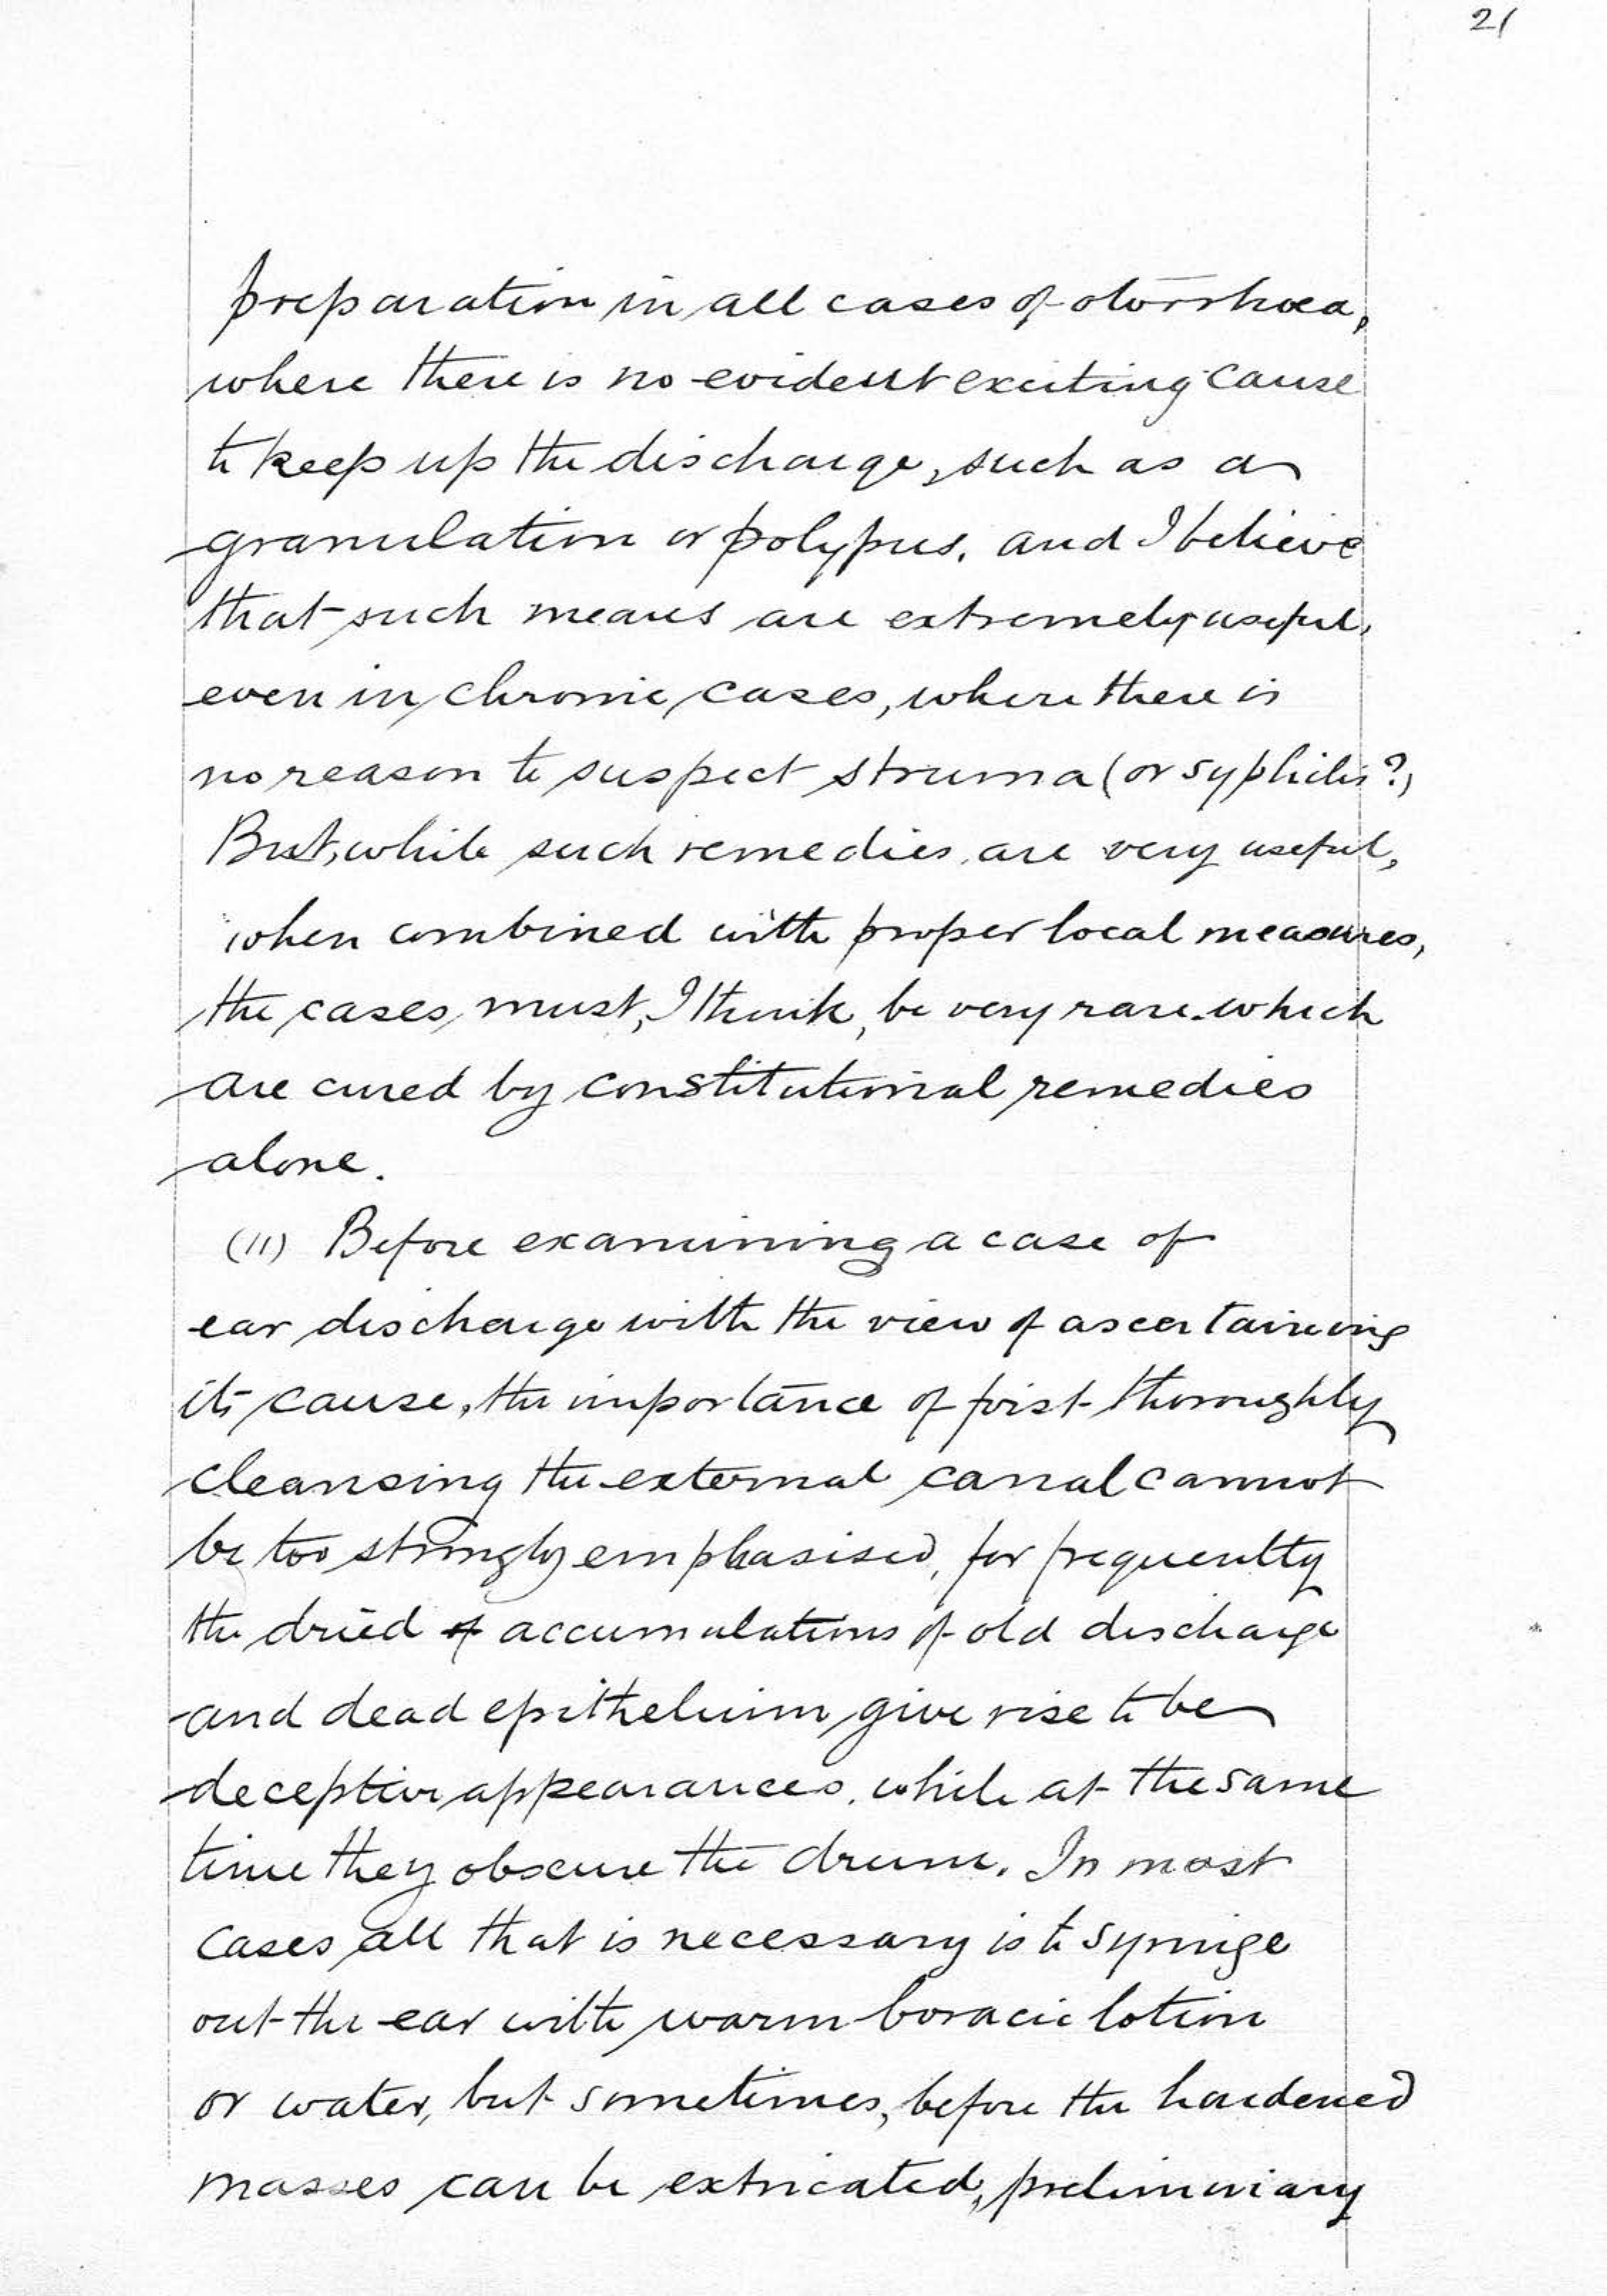 21
preparation in all cases of otorrhoea,
where there is no evident exciting cause
to keep up the discharge, such as a
granulation or polypus, and I believe
that such means are extremely useful,
even in chronic cases, where there is
no reason to suspect struma (or syphilis?)
But, while such remedies are very useful,
when combined with proper local measures,
the cases must, I think, be very rare which
are cured by constitutional remedies
alone.
(11) Before examining a case of
ear discharge with the view of ascertaining
its cause, the importance of first thoroughly
cleansing the external canal cannot
be too strongly emphasised, for frequently
the dried accumulations of old discharge
and dead epithelium give rise to be
deceptive appearances, while at the same
time they obscure the drum. In most
cases all that is necessary is to syringe
out the ear with warm boracic lotion
or water, but sometimes, before the hardened
masses can be extricated, preliminiary